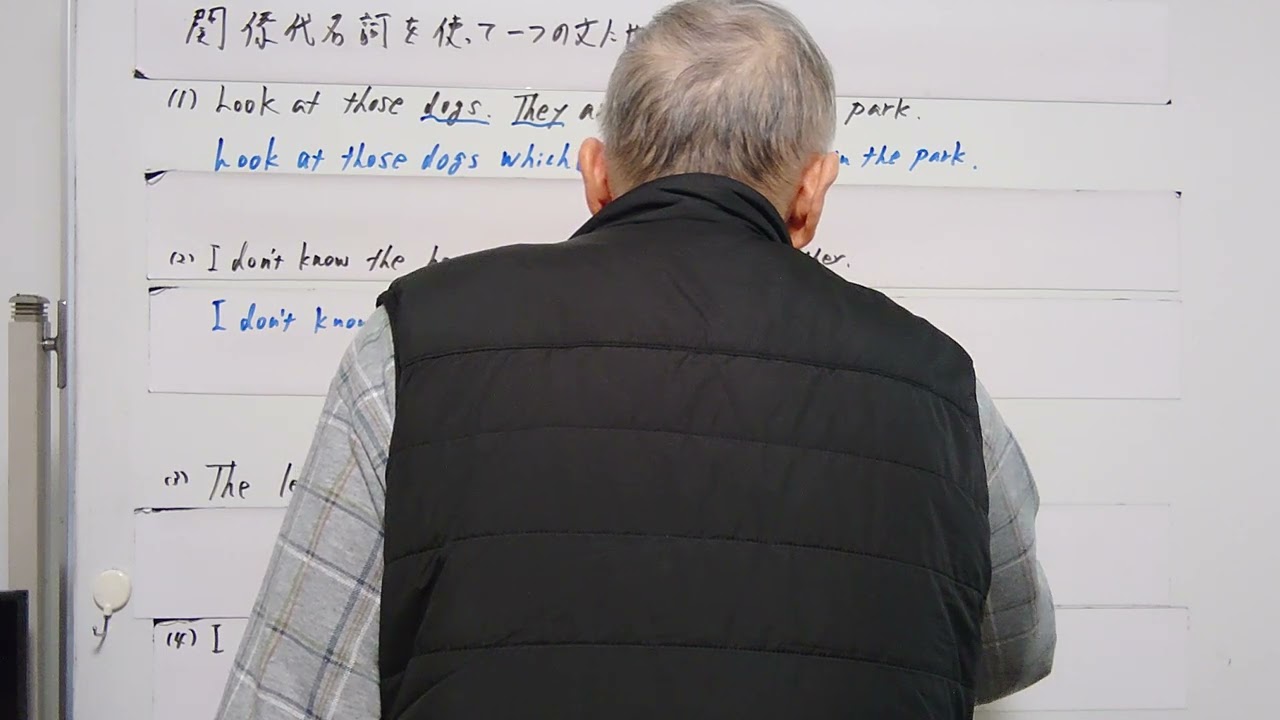 関係代名詞を使って一つの文にせ
(1) Look at those dogs. They a park.
Look at those dogs which in the park.
(2) I don't know the
I don't know
(3) The
(4) I